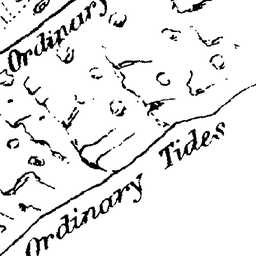 Ordinary
Ordinary Tides